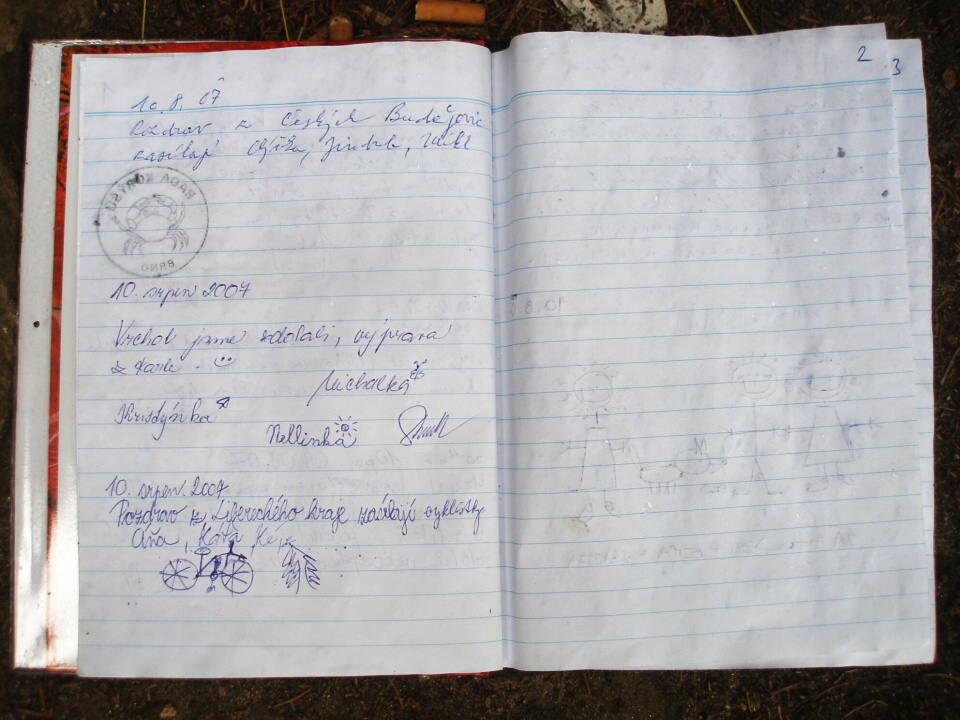 2
3
10. 8. 07
Pozdrav z Českých Budějovic
zasílají Jindra,
10. srpen 2007
Vrchol jsme zdolali, výprava
z
Michalka
Kristýnka
Nellinka
10. srpen. 2007
Pozdrav z Libereckého kraje zasílají cyklisty
Áňa, Káťa,